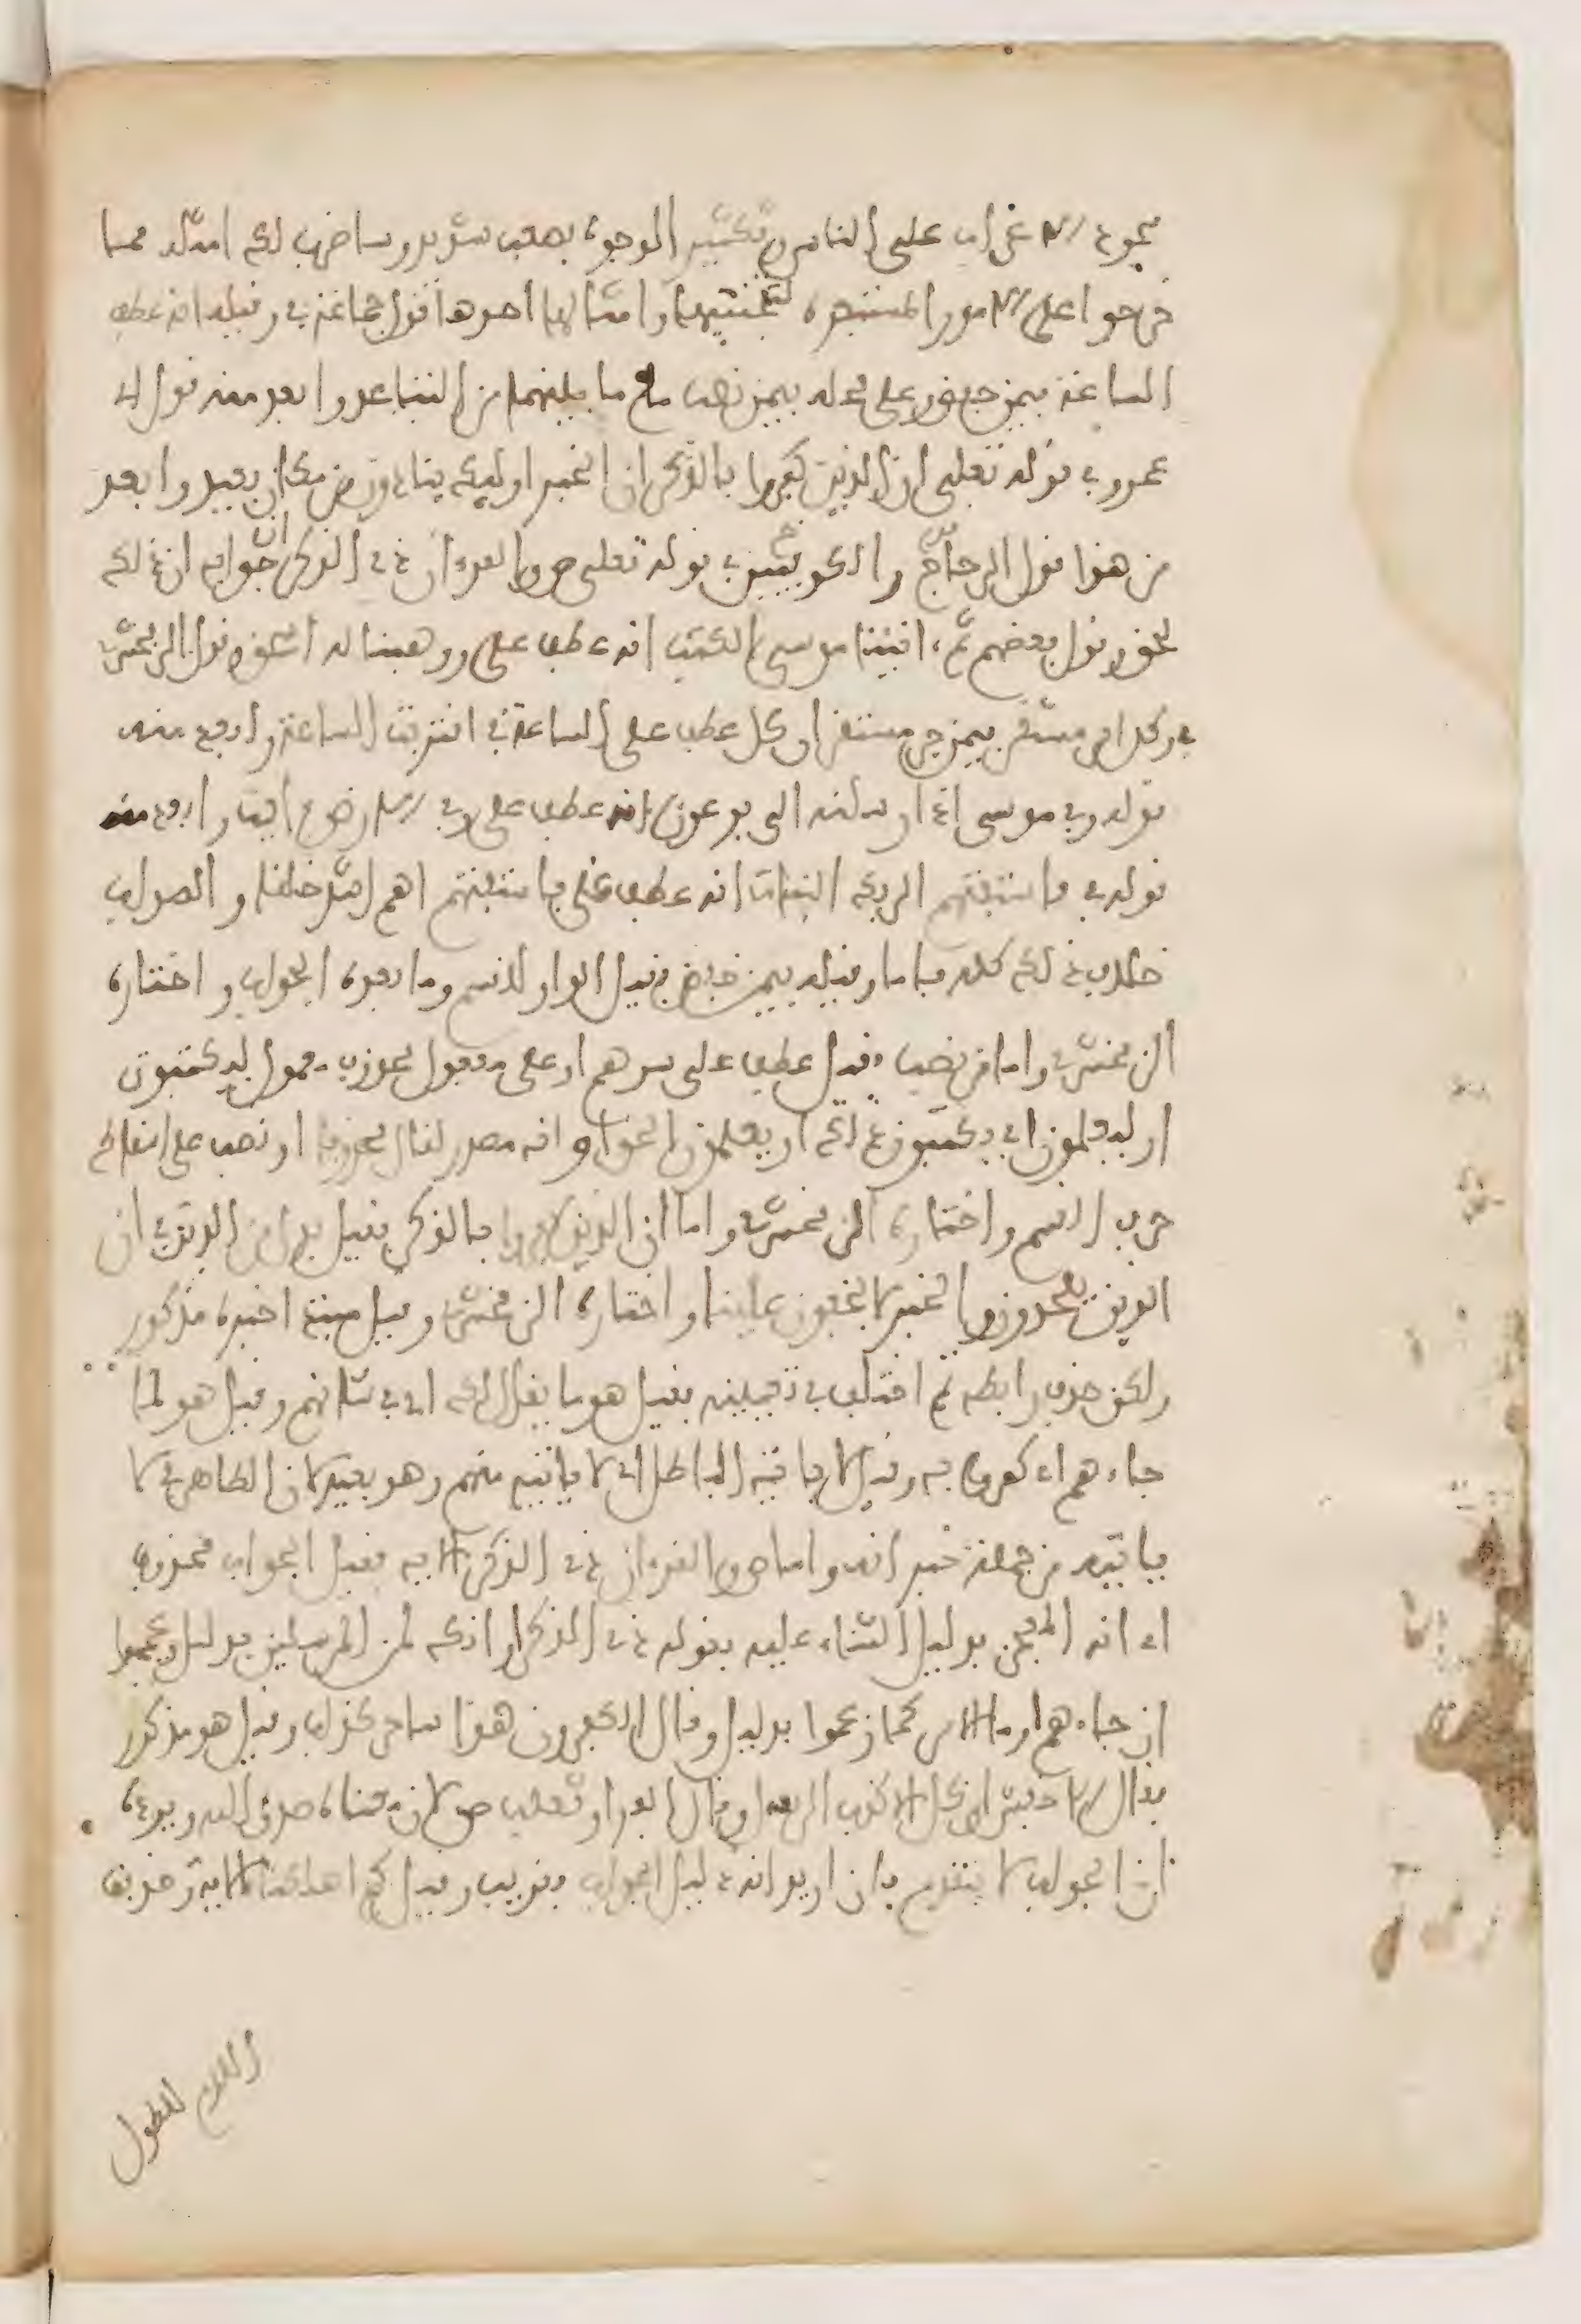 يجوز الاعراب على الناس تكثير الوجوه بصعب شديد وساضرب لك امثلة مما
خرجوا على الامور المستبعدة لتجتنبها وامثالها احدها قول جماعة في وقيله انه عطف على
الساعة بيمن خفض وعلى محله بيمن نصب مع ما بينهما من التباعد وابعد منه قول ابي
عمرو في قوله تعلى ان الذين كفروا بالذكر ان الخبر اوليك ينادون من مكان بعيد وابعد
من هذا قول الزجاج والكوفيين في قوله تعلى ص والقرءان ذي الذكر ان جوابه ان ذلك
لحق وقول بعضهم ثم اتينا موسى الكتب انه عطف على ووهبنا له اسحق وقول الزمخشري
في وكل امر مستقر بيمن جر مستقر ان كل عطف على الساعة في اقتربت الساعة وابعد منه
قوله وفي موسى اذ ارسلنه الى فرعون انه عطف على وفي الارض ءايت وابعد منه
قوله في فاستفتهم الربك البنات انه عطف على فاستفتهم اهم اشد خلقا والصواب
خلاف ذلك كله فاما وقيله بيمن خفض فقيل الواو للقسم وما بعده الجواب واختاره
الزمخشري واما من نصب فقيل عطف على سرهم او على مفعول محذوف معمول ليكتبون
او ليعلمون اي يكتبون ذلك او يعلمون الحق او انه مصدر لقال محذوفا او نصب على اسقاط
حرف القسم واختاره الزمخشري واما ان الذين كفروا بالذكر فقيل بدل من الذين في ان
الذين يلحدون والخبر لا يخفون علينا واختاره الزمخشري وقيل مبتدا خبره مذكور
ولكن حذف رابطه ثم اختلف في تعيينه فقيل هو ما يقال لك اي في شانهم وقيل هو لما
جاءهم اي كفروا به وقيل لا ياتيه الباطل اي لا ياتيه منهم وهو بعيد لان الظاهر ان لا
ياتيه من جملة خبر انه واما ص والقرءان ذي الذكر الاية فقيل الجواب محذوف
اي انه المعجز بدليل الثناء عليه بقوله ذي الذكر او انك لمن المرسلين بدليل وعجبوا
ان جاءهم او ما الامر كما زعموا بدليل وقال الكفرون هذا ساحر كذاب وقيل هو مذكور
فقال الاخفش ان كل الا كذب الرسل وقال الفراء وثعلب ص لان معناه صدق الله ويرده
ان الجواب لا يتقدم فان اريد انه دليل الجواب فقريب وقيل كم اهلكنا الاية وحذفت
اللام للطول